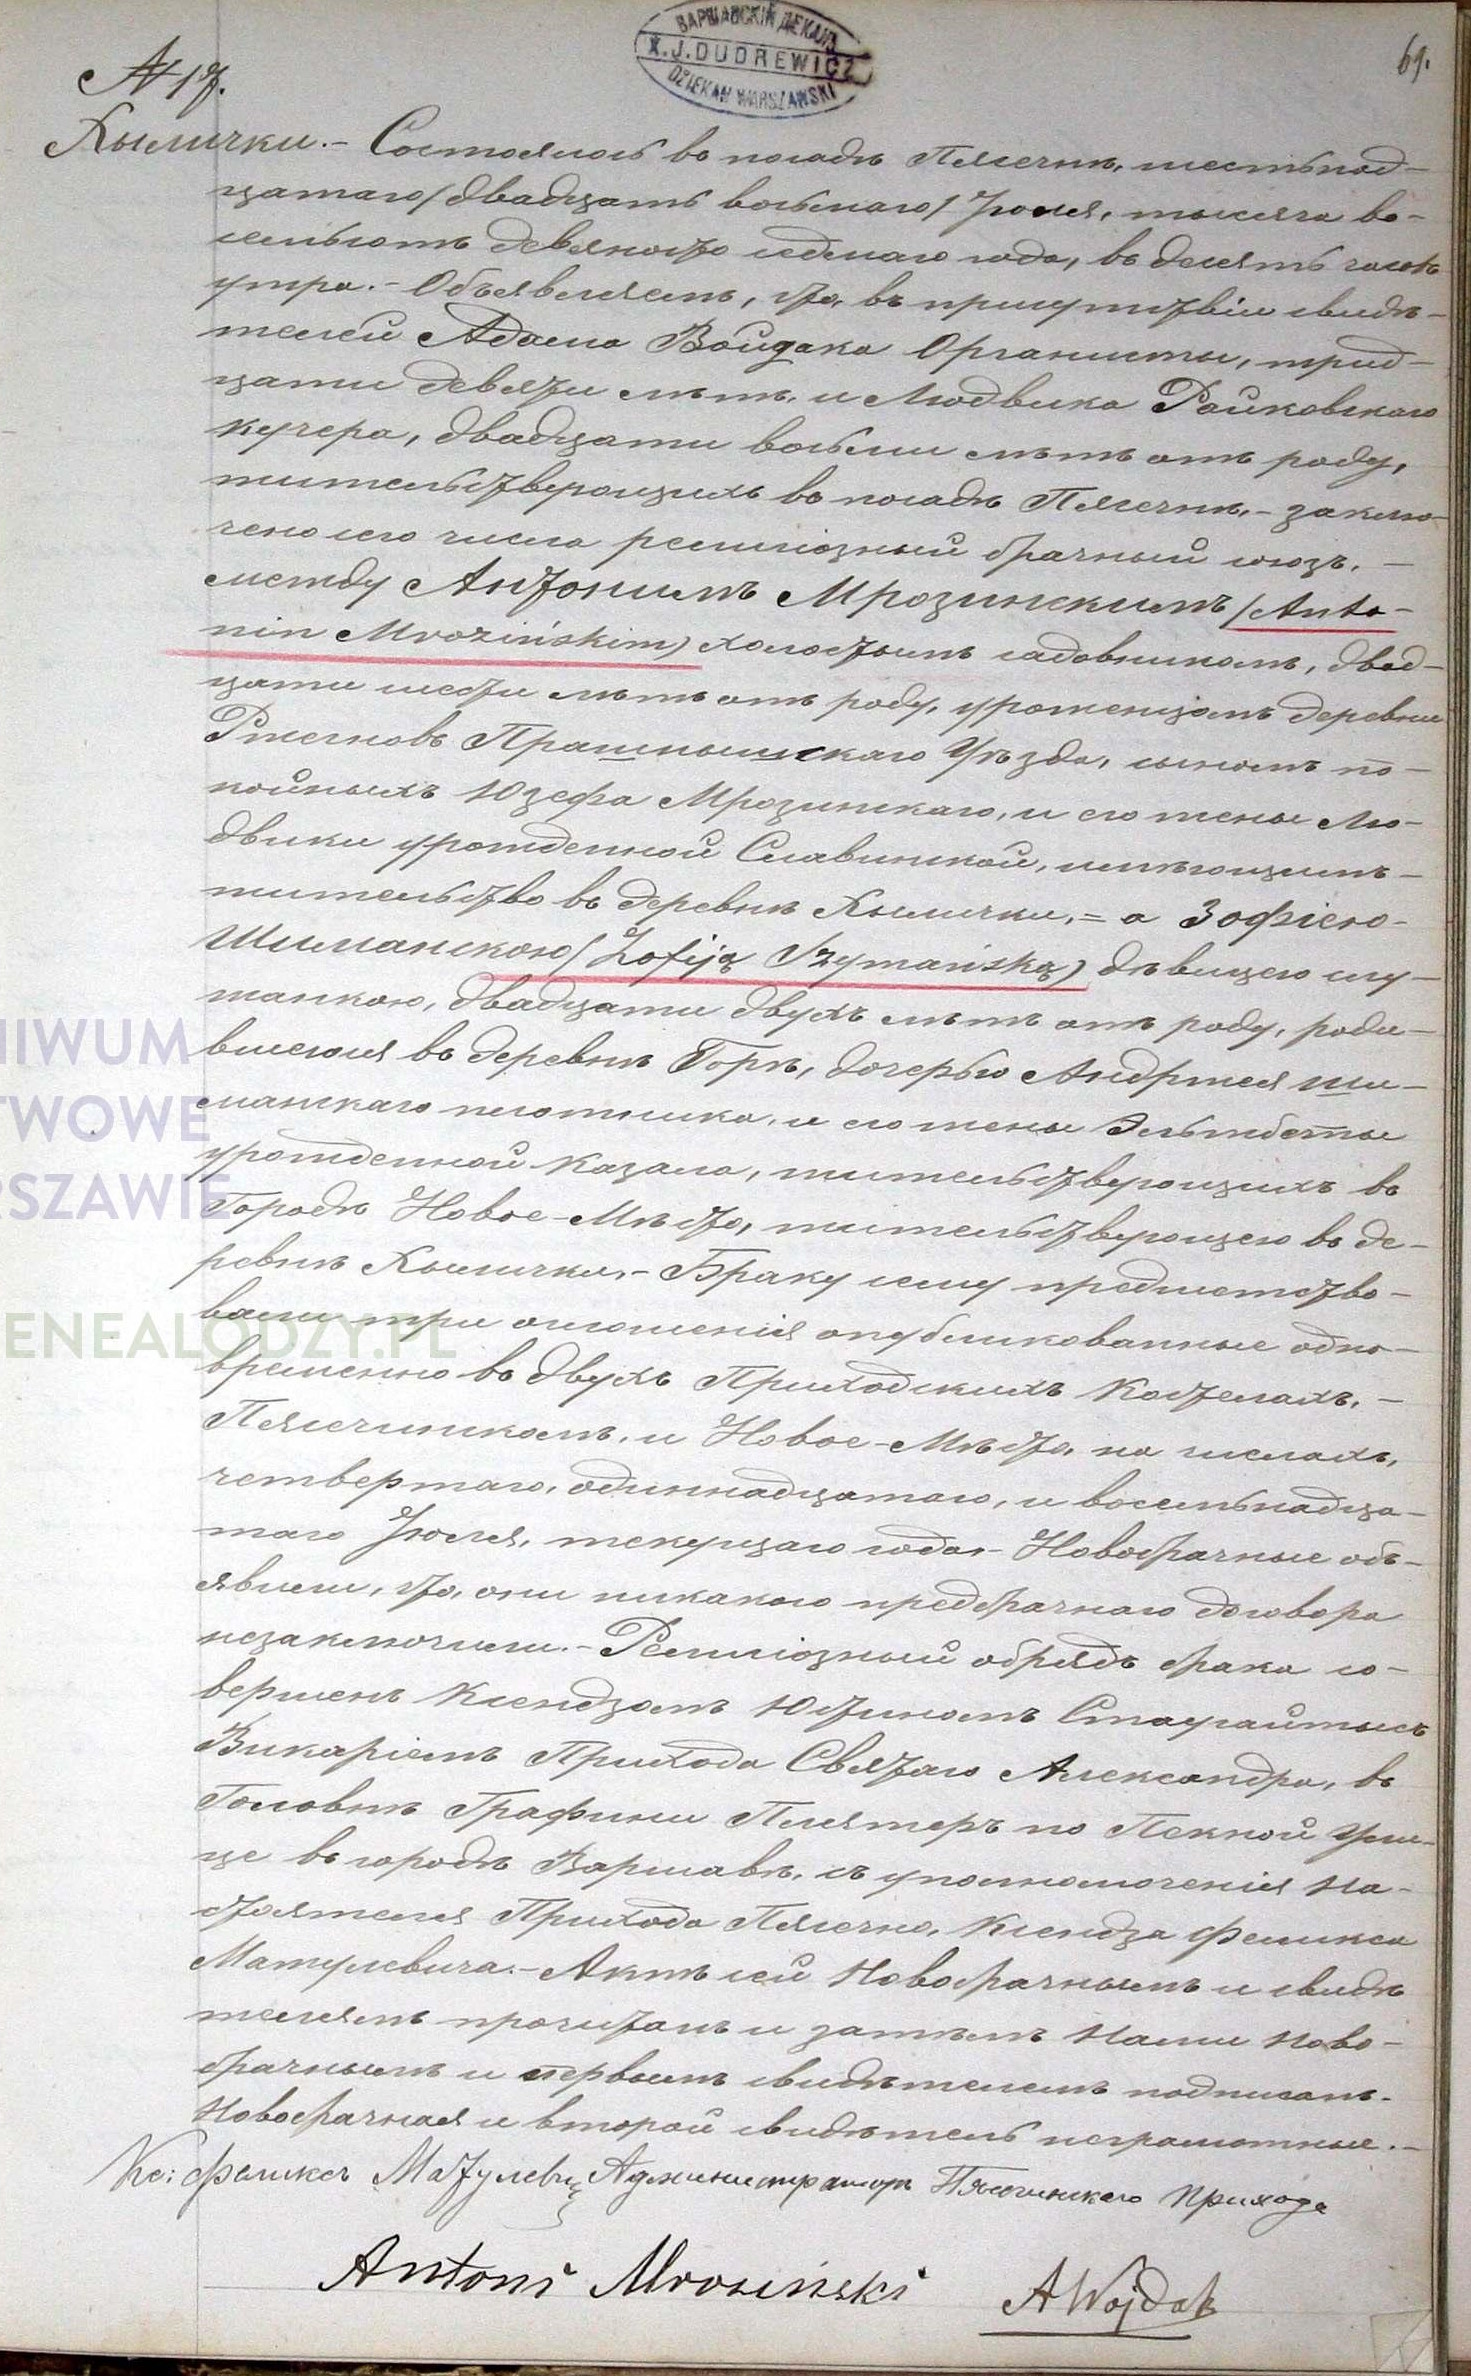 ВАРШАВСКІЙ ДЕКАНЪ
X. J. DUDREWICZ
DZIEKAN WARSZAWSKI
61.
N 17.
Хылички. – Состоялось въ посадѣ Пясечнѣ, шестьнад-
цатаго / двадцать восьмаго / Іюля, тысяча во-
семьсотъ девяносто седмаго года, въ десять часовъ
утра. – Объявляемъ, что, въ присутствіи свидѣ-
телей Адама Войдака Органисты, трид-
цати девяти лѣтъ, и Людвика Райковскаго
кучера, двадцати восьми лѣтъ отъ роду,
жительствующихъ въ посадѣ Пясечнѣ, – заклю-
чено сего числа религіозный брачный союзъ. –
между Антонимъ Мрозинскимъ / Anto-
nim Mrozińskim) холостымъ садовникомъ, двад-
цати шести лѣтъ отъ роду, уроженцомъ деревни
Ржегновъ Прашнышскаго Уѣзда, сыномъ по-
койныхъ Юзефа Мрозинскаго, и его жены Лю-
двики урожденной Славинской, имѣющимъ –
жительство въ деревнѣ Хылички, = а Зофіею –
Шиманскою / Zofiją Szymańską) дѣвицею слу-
жанкою, двадцати двухъ лѣтъ отъ роду, роди-
вшеюся въ деревнѣ Горѣ, дочерью Андржея Ши-
манскаго плотника, и его жены Эльжбеты
урожденной Казала, жительствующихъ въ
Городѣ Новое-Мѣсто, жительствующею въ де-
ревнѣ Хылички, – Браку сему предшество-
вали три оглошенія опубликованные одно-
временно въ двухъ Приходскихъ Костелахъ, –
Пясечинскомъ, и Новое-Мѣсто, на числахъ,
четвертаго, одиннадцатаго, и восемьнадца-
таго Іюля, текущаго года – Новобрачные объ-
явили, что, они никакого предбрачнаго договора
незаключили. – Религіозный обрядъ брака со-
вершенъ Ксендзомъ Юстиномъ
Викаріемъ Прихода Святаго Александра, въ
Графини Плятеръ по Пекной Ули-
це въ городѣ Варшавѣ, съ уполномоченія На-
стоятеля Прихода Пясечно, Ксендза Феликса
Матулевича. – Актъ сей Новобрачнымъ и свидѣ
телямъ прочитанъ и затѣмъ Нами Ново-
брачнымъ и первымъ свидѣтелемъ подписанъ.
Новобрачная и второй свидѣтель неграмотные. –
Кс: Феликсъ Матулевич Администраторъ Пясечинскаго Прихода
Antoni Mrosiński AWojdak
ARCHIWUM
PAŃSTWOWE
W WARSZAWIE
GENEALODZY.PL